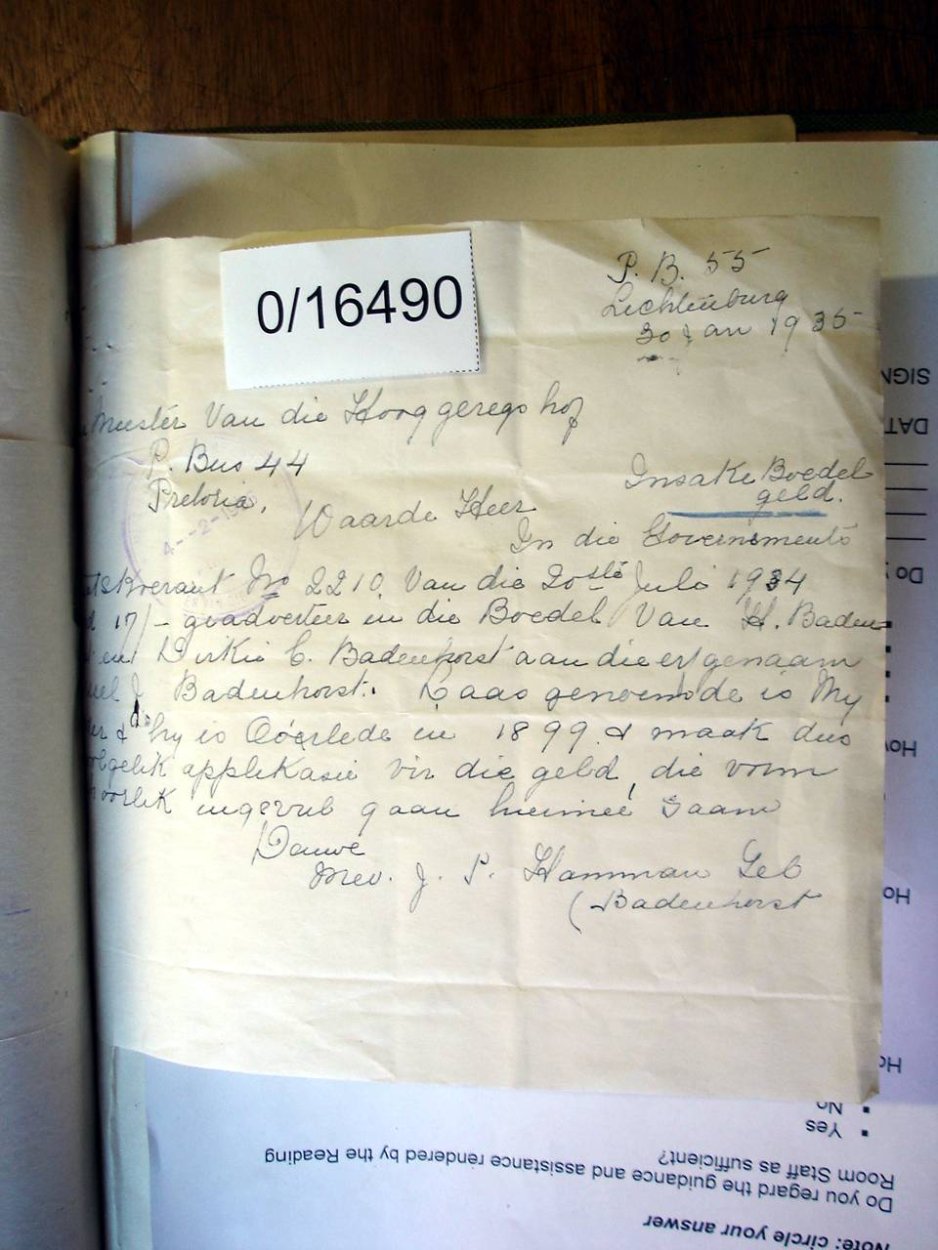 0/16490
P. B. 55
Lichtenburg
30 Jan 1935
Meester Van die Hooggeregshof
P. Bus 44
Pretoria.
Insake Boedel
geld.
Waarde Heer
In die Governments
No 2210. Van die 20ste Juli 1934
17/- geadverteer in die Boedel Van H. Baden
en Dirkie C. Badenhorst aan die erfgenaam
J Badenhorst. Laas genoemde is My
& hy is Oorlede in 1899. & maak dus
applikasie vir die geld, die vorm
ingevul gaan hiermee saam
Mev. J. P. Hamman Geb
(Badenhorst
4--2-19
SIGN
DAT
Do y
Hov
Ho
Ho
No
Yes
Room Staff as sufficient?
Do you regard the guidance and assistance rendered by the Reading
Note: circle your answer